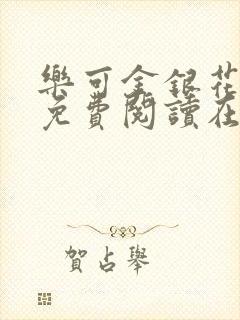 樂可金銀花
免費閱讀在
賀占舉